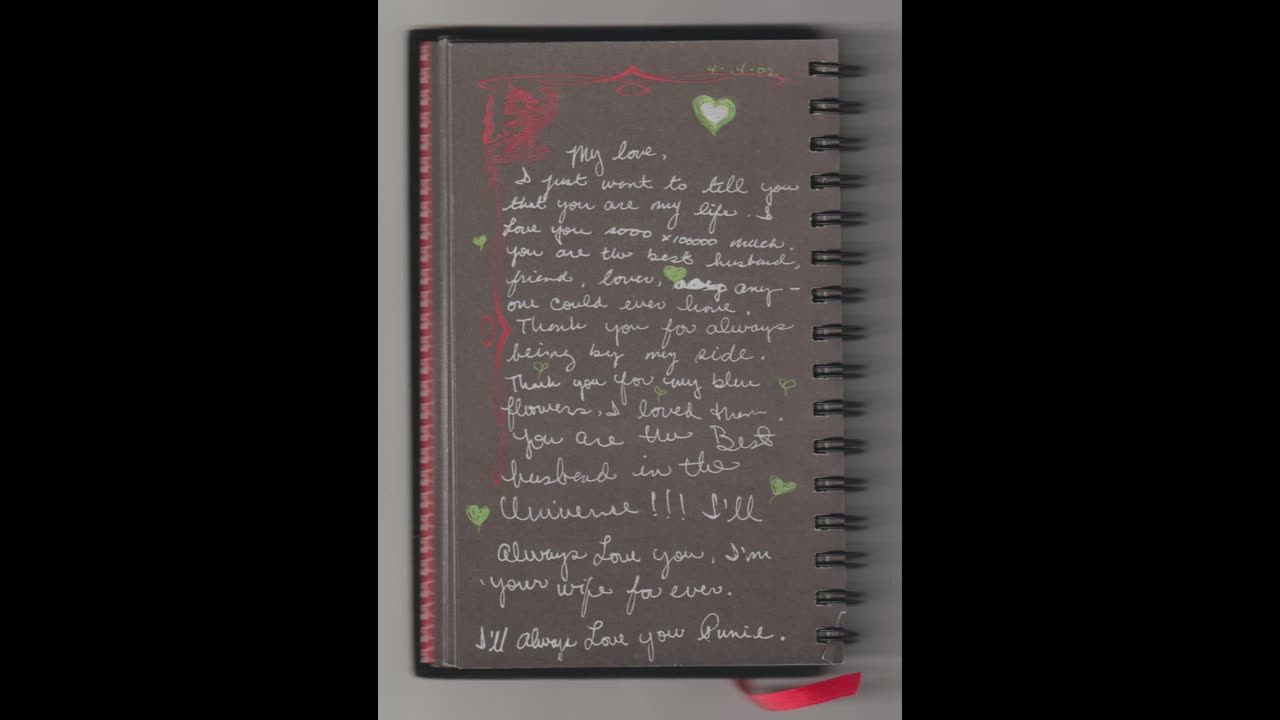 4-14-02
My love,
I just want to tell you
that you are my life. I
Love you soooo x100000 much.
you are the best husband,
friend, lover, any-
one could ever have.
Thank you for always
being by my side.
Thank you for my blue
flowers, I loved them.
You are the Best
husband in the
Universe!!! I'll
always Love you, I'm
your wife for ever.
I'll always Love you Punie.